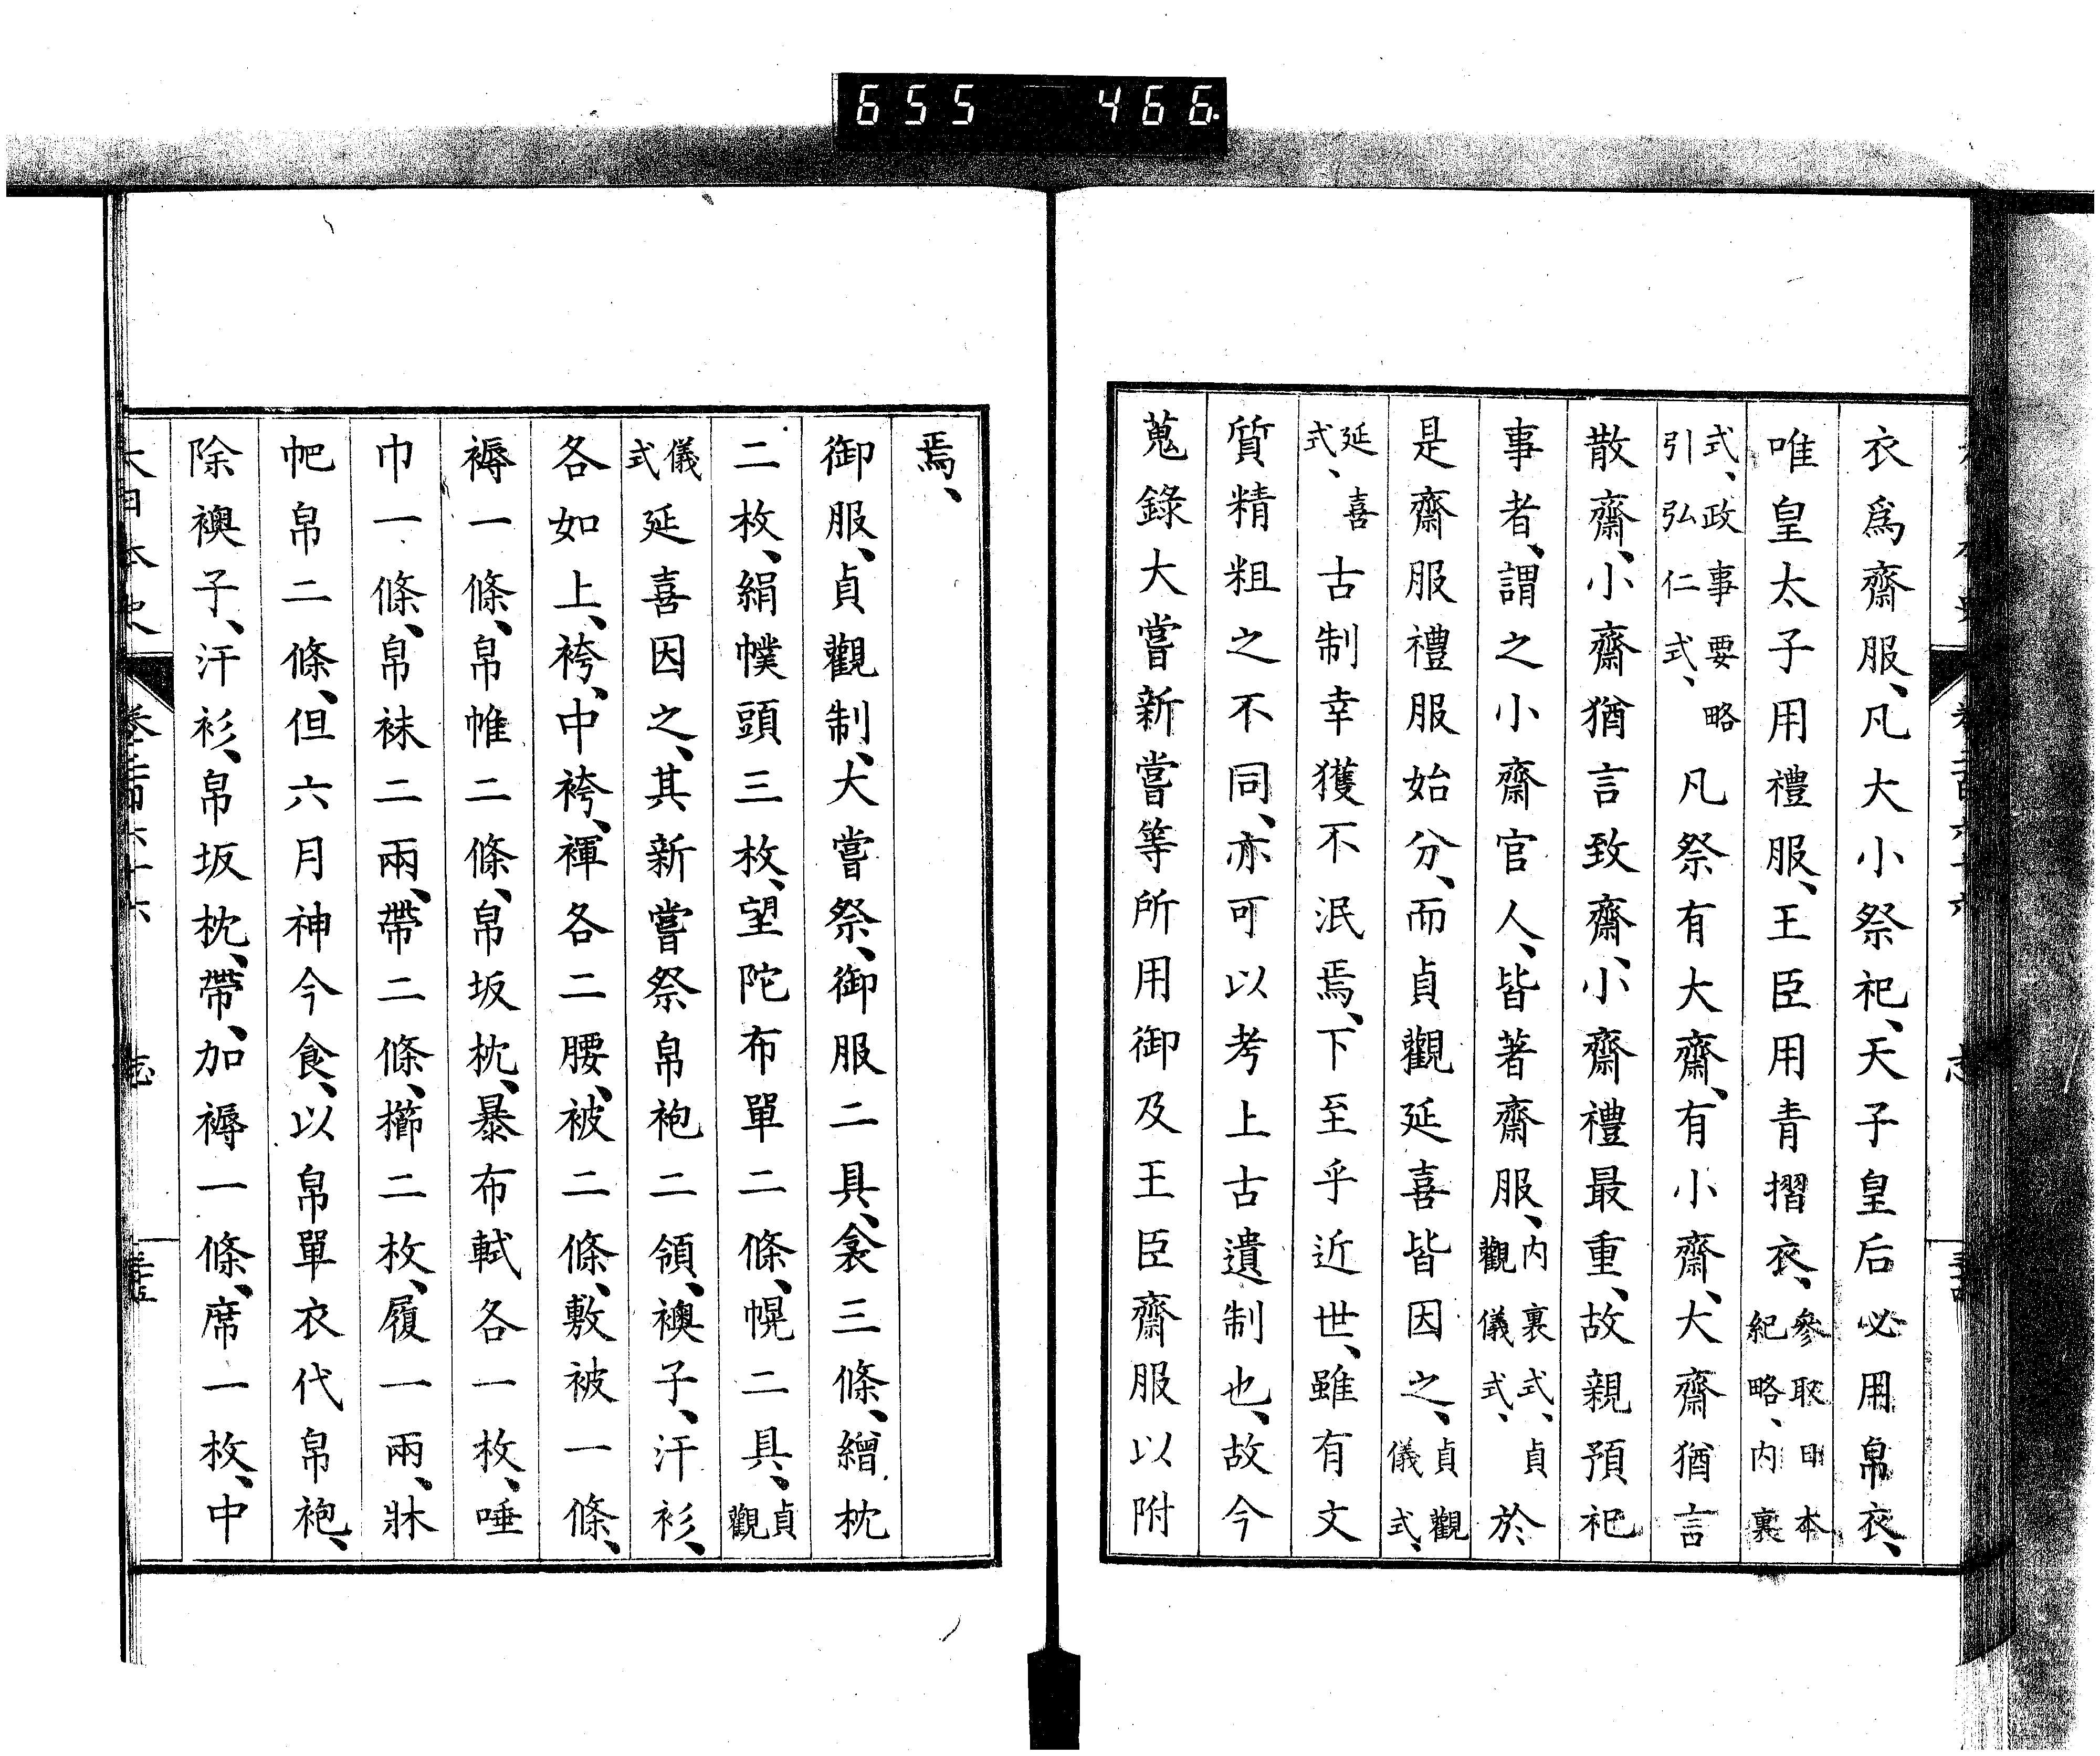 655 466.
衣爲齋服、凡大小祭祀、天子皇后必用帛衣、
唯皇太子用禮服、王臣用青摺衣、參取日本紀略、内裏
式、政事要略引弘仁式、凡祭有大齋、有小齋、大齋猶言
散齋、小齋猶言致齋、小齋禮最重、故親預祀
事者、謂之小齋官人、皆著齋服、内裏式、貞觀儀式、於
是齋服禮服始分、而貞觀延喜皆因之、貞觀儀式、
延喜式、古制幸獲不泯焉、下至乎近世、雖有文
質精粗之不同、亦可以考上古遺制也、故今
蒐錄大嘗新嘗等所用御及王臣齋服以附
焉、
御服、貞觀制、大嘗祭、御服二具、衾三條、繒枕
二枚、絹幞頭三枚、望陀布單二條、幌二具、貞觀
儀式延喜因之、其新嘗祭帛袍二領、襖子、汗衫、
各如上、袴、中袴、褌各二腰、被二條、敷被一條、
褥一條、帛帷二條、帛坂枕、暴布軾各一枚、唾
巾一條、帛袜二兩、帶二條、櫛二枚、履一兩、牀
帊帛二條、但六月神今食、以帛單衣代帛袍、
除襖子、汗衫、帛坂枕、帶、加褥一條、席一枚、中
大日本史 卷二百六十六 志